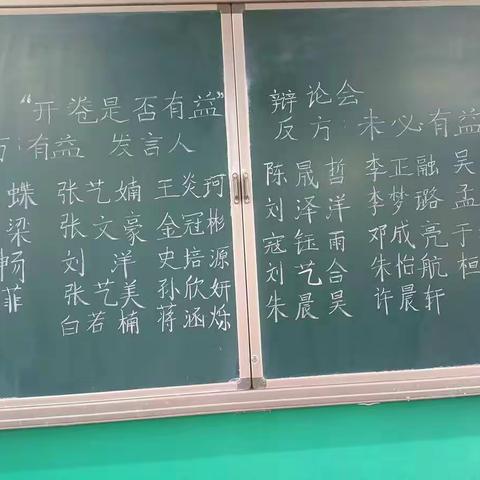 “开卷是否有益”辩论会
方:有益 发言人
反方:未必有益
蝶 张艺婻 王炎珂
梁 张文豪 金冠彬
畅 刘洋 史培源
菲 张艺美 孙欣妍
白若楠 蒋涵烁
陈晟哲 李正融 吴
刘泽洋 李梦璐 孟
寇钰雨 邓成亮 于
刘艺合 朱怡航 桓
朱晨昊 许晨轩